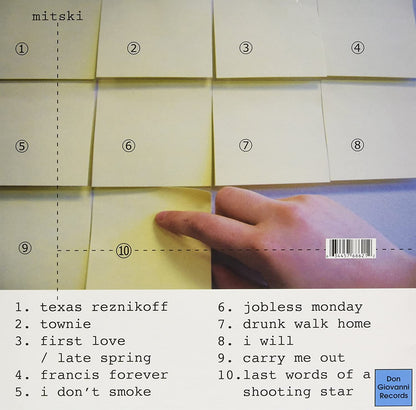 mitski
① ② ③ ④
⑤ ⑥ ⑦ ⑧
⑨ ⑩
1. texas reznikoff
2. townie
3. first love
/ late spring
4. francis forever
5. i don't smoke
6. jobless monday
7. drunk walk home
8. i will
9. carry me out
10.last words of a
shooting star
Don
Giovanni
Records